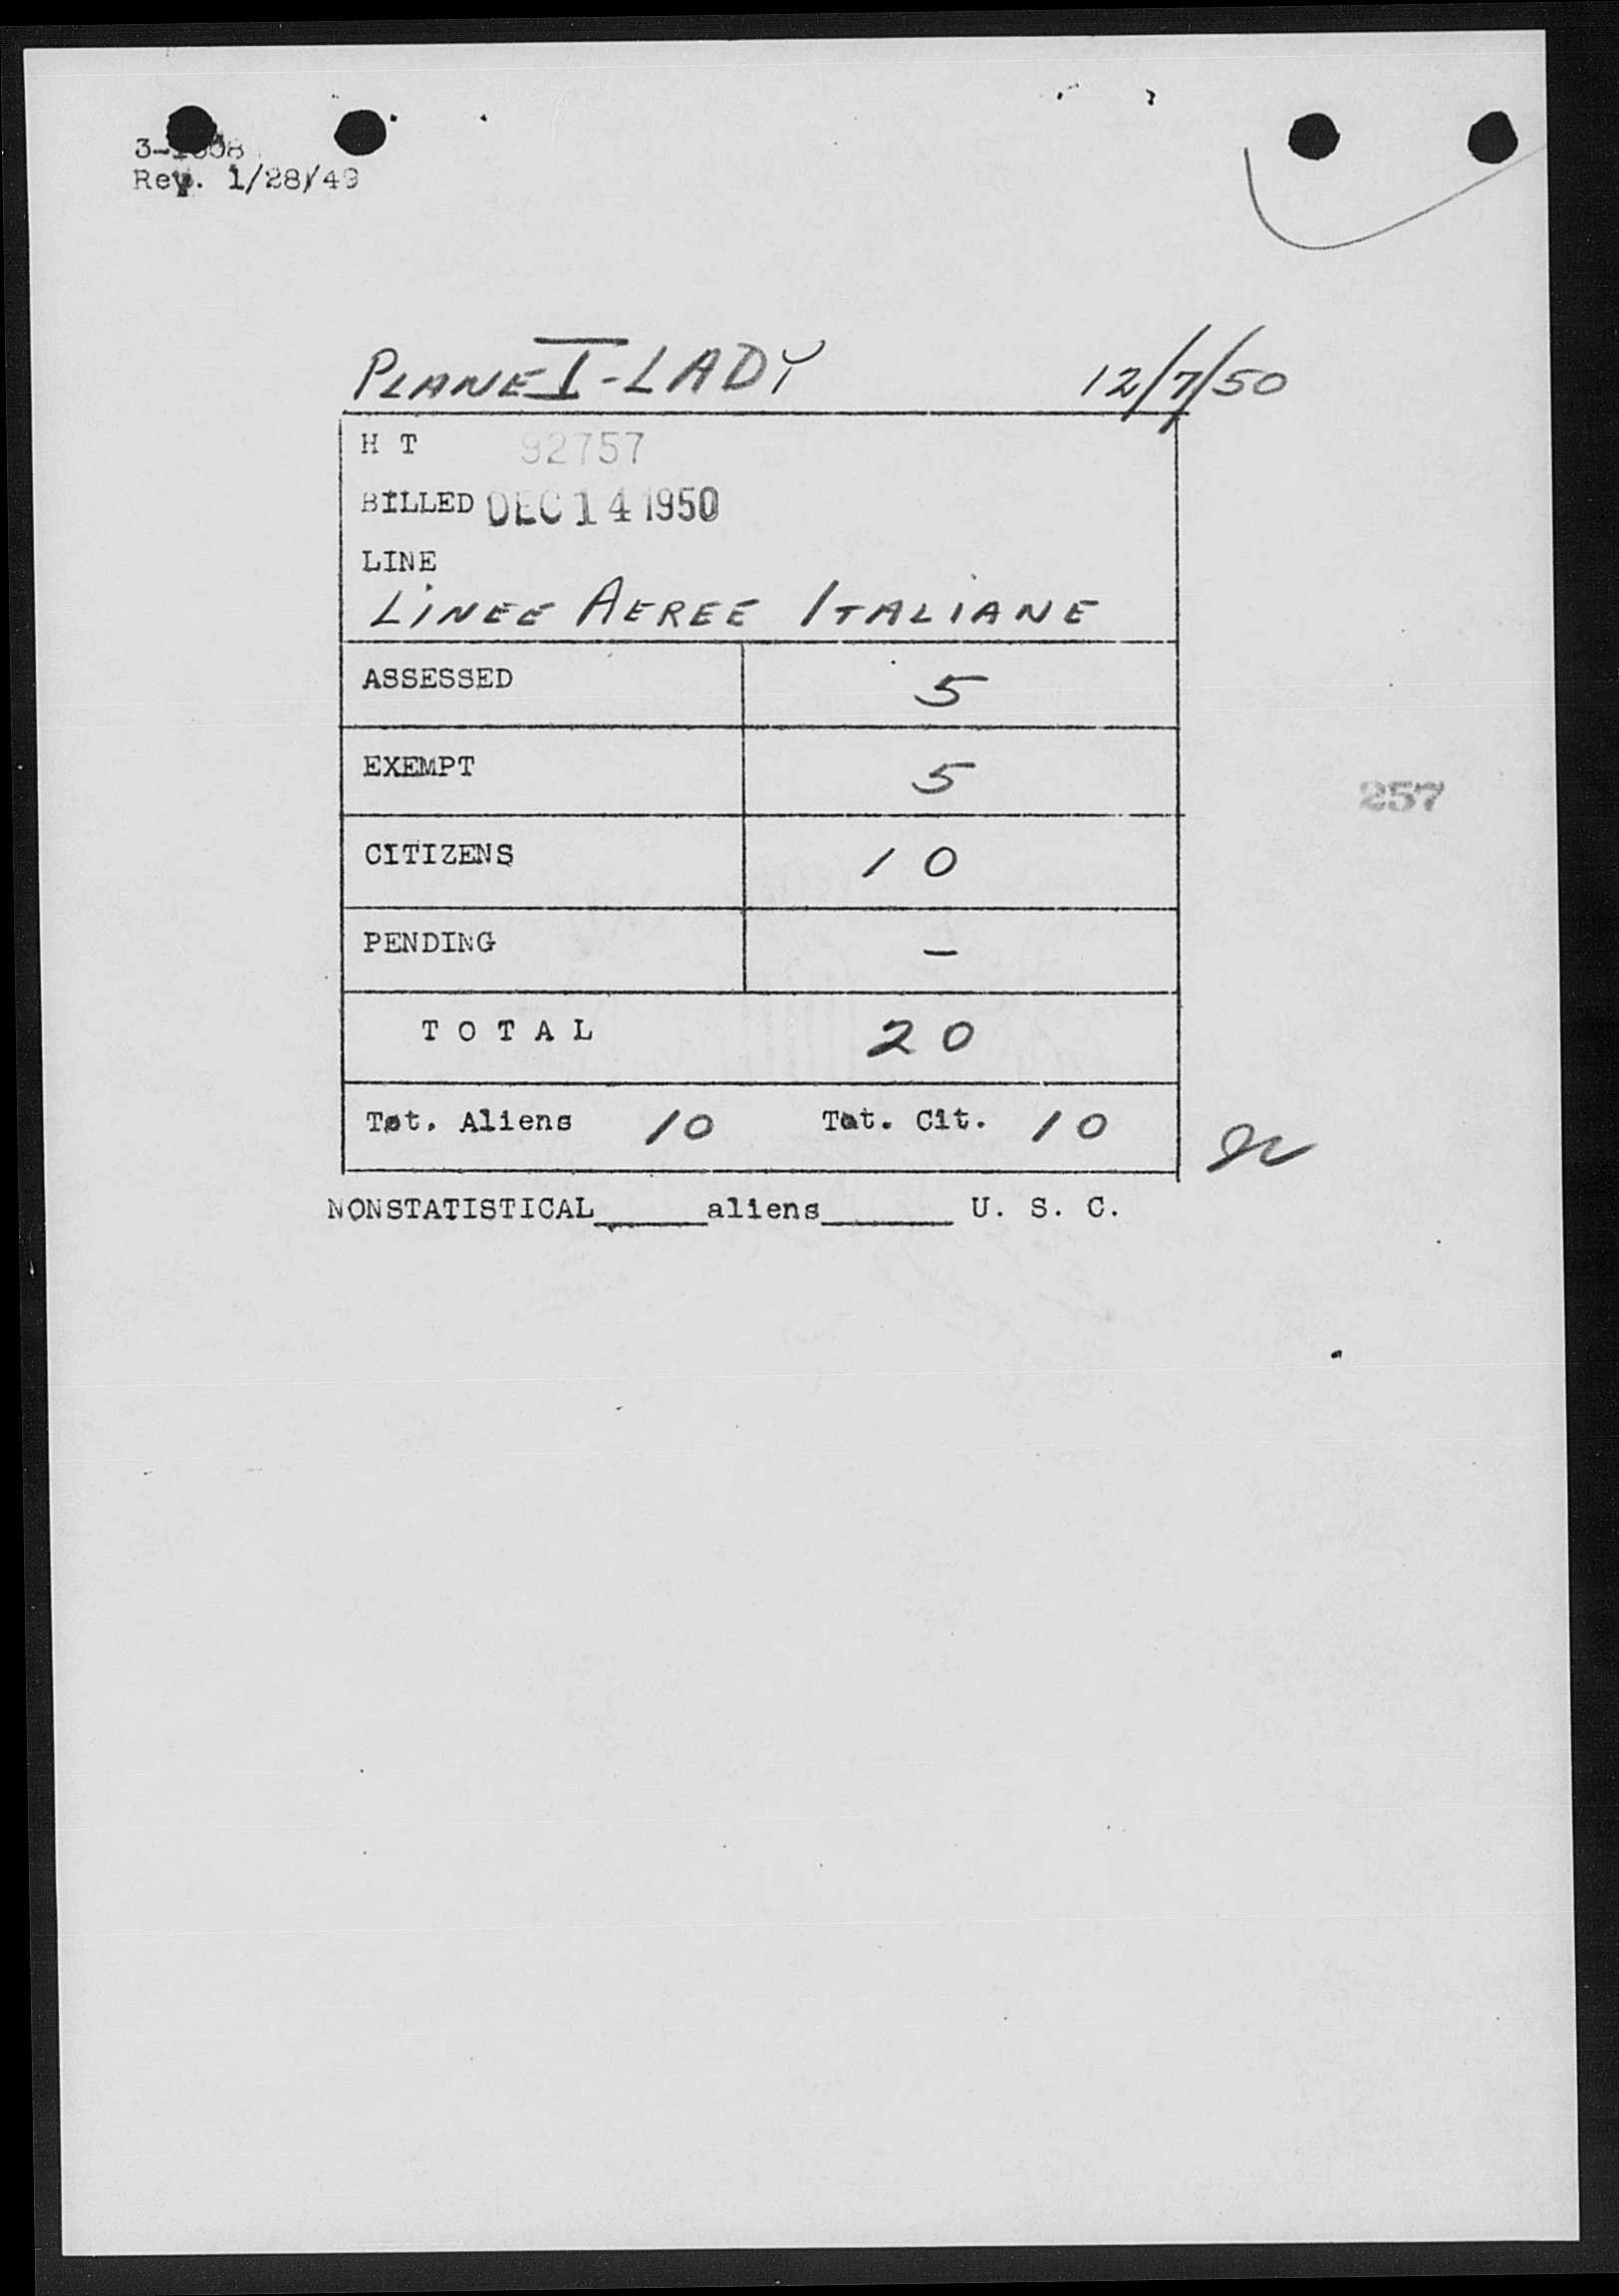 Rev. 1/28/49
PLANE I-LADY 12/7/50
H T 92757
BILLED DEC 14 1950
LINE
LINEE AEREE ITALIANE
ASSESSED 5
EXEMPT 5
257
CITIZENS 10
PENDING —
TOTAL 20
Tot. Aliens 10 Tot. Cit. 10
NONSTATISTICAL______aliens_______ U. S. C.